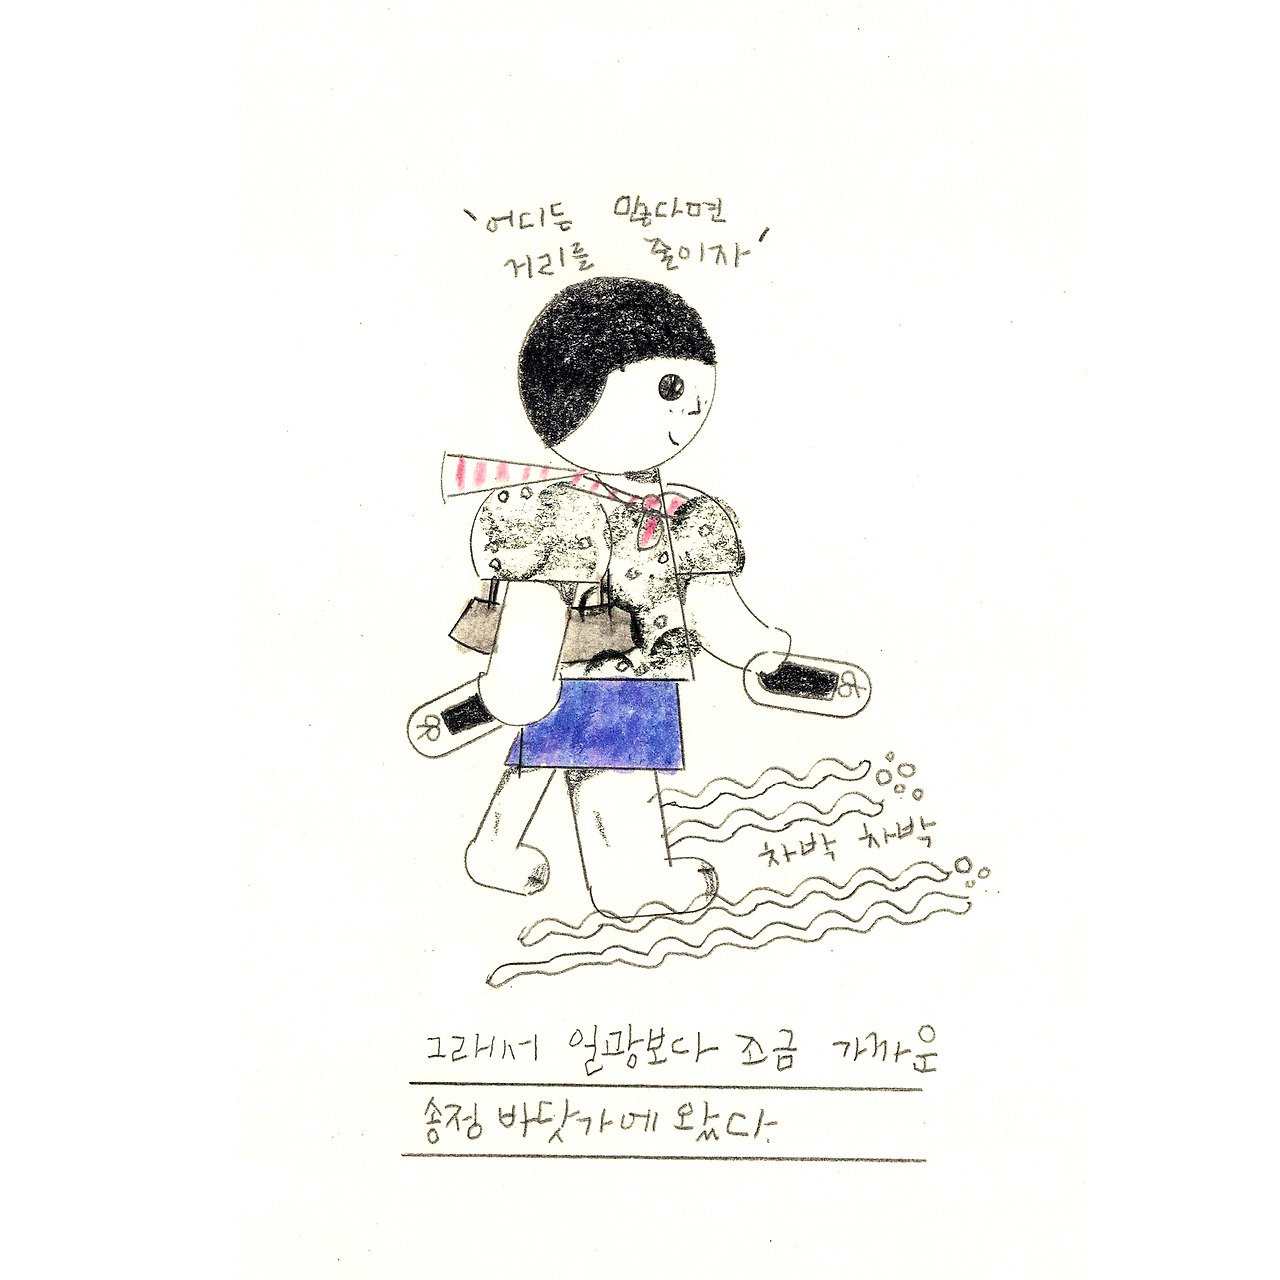 '어디든
거리를 줄이자'
차박 차박
그래서 일광보다 조금 가까운
송정 바닷가에 왔다.